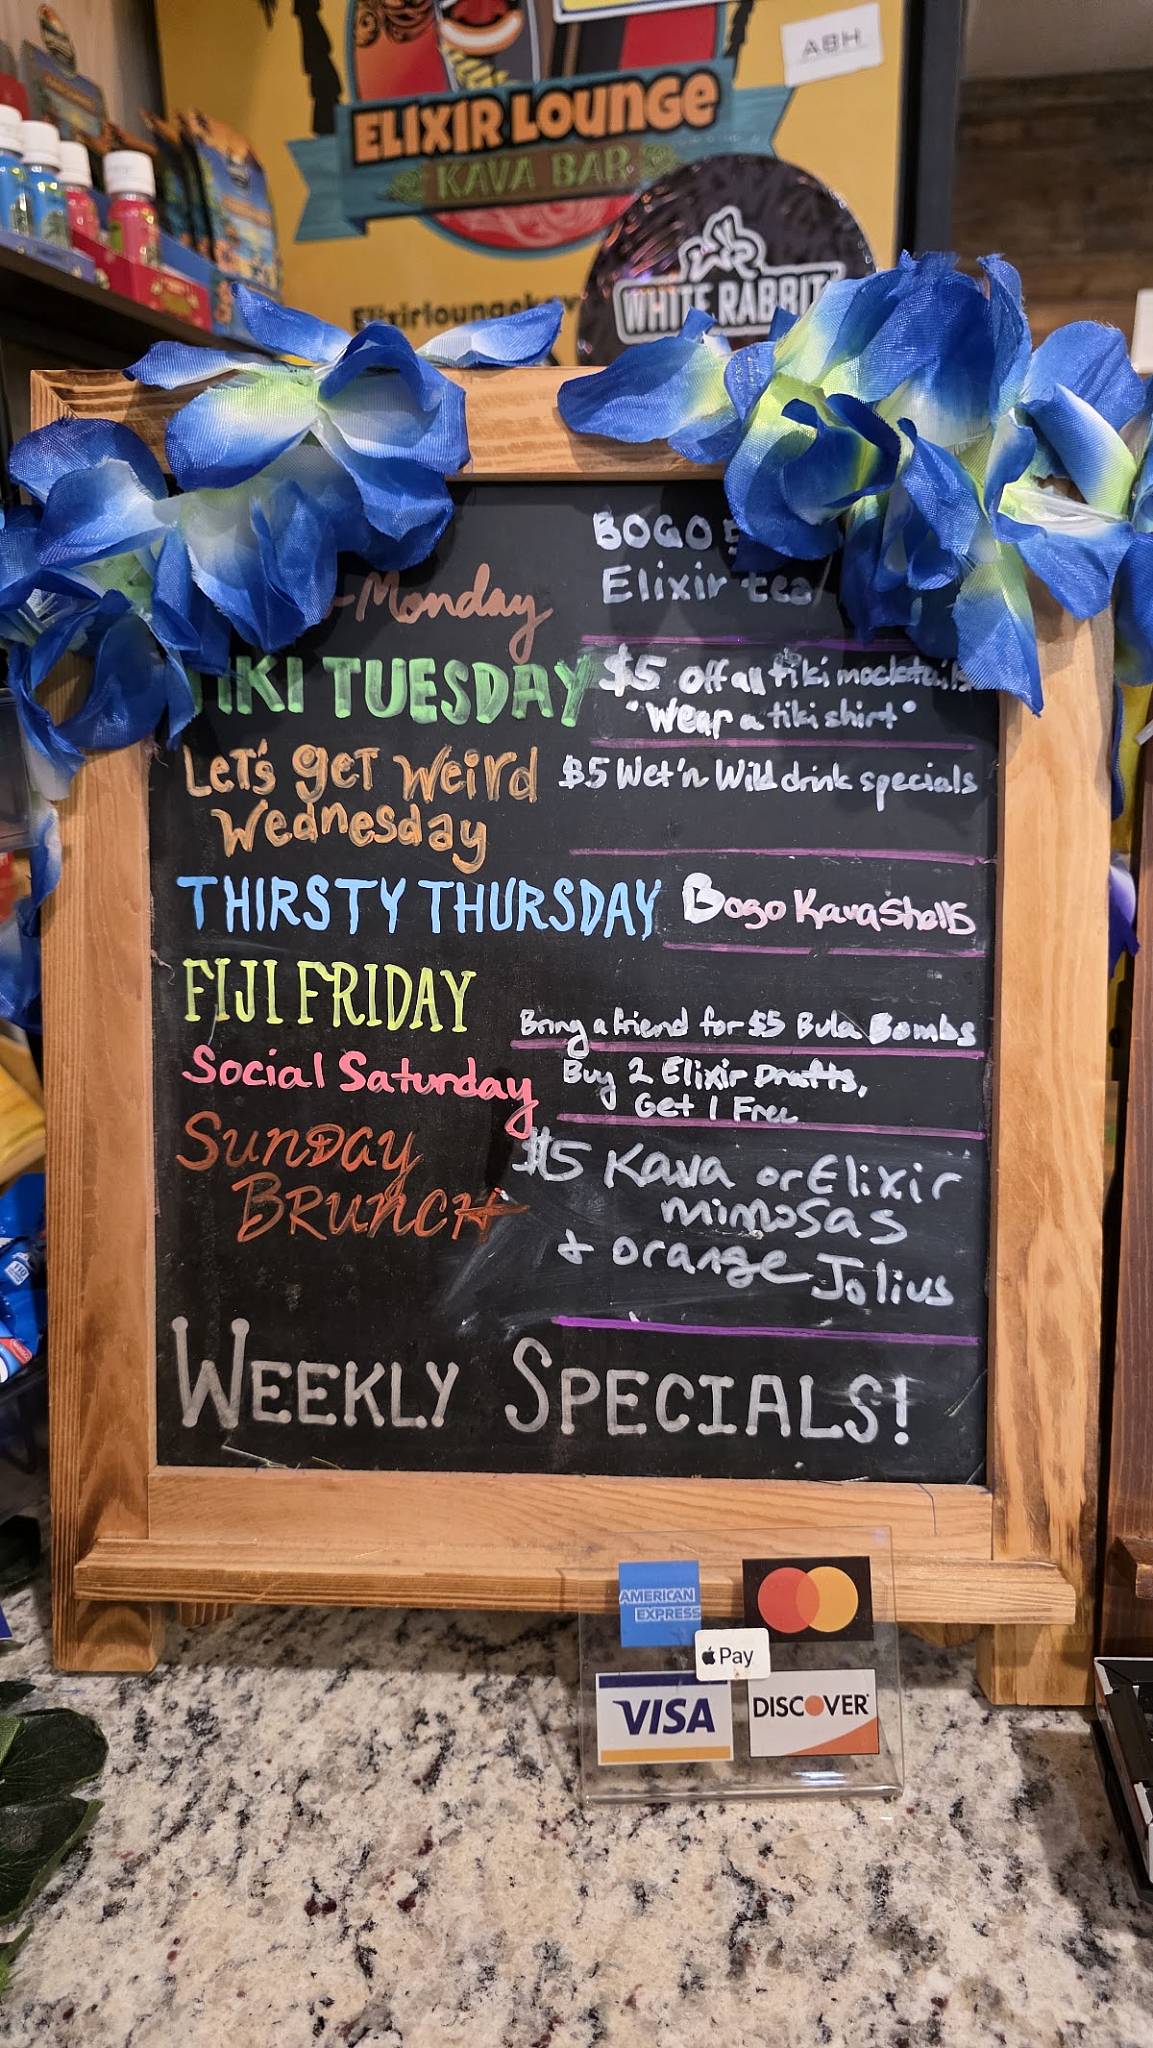 ABH
ELIXIR LOUNGE
KAVA BAR
WHITE RABBIT
BOGO
Elixir tea
-Monday
TIKI TUESDAY $5 off all tiki mocktails
"Wear a tiki shirt"
Let's get Weird $5 Wet'n Wild drink specials
Wednesday
THIRSTY THURSDAY Bogo Kava Shells
FIJI FRIDAY
Bring a friend for $5 Bula Bombs
Social Saturday Buy 2 Elixir Drafts,
Get 1 Free
SUNDAY $5 Kava or Elixir
BRUNCH mimosas
+ orange Jolius
WEEKLY SPECIALS!
AMERICAN
EXPRESS
Pay
VISA DISCOVER